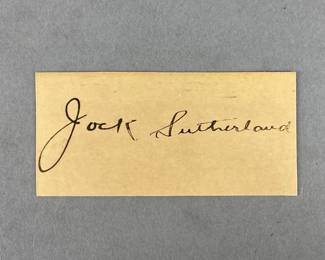 Jock Sutherland